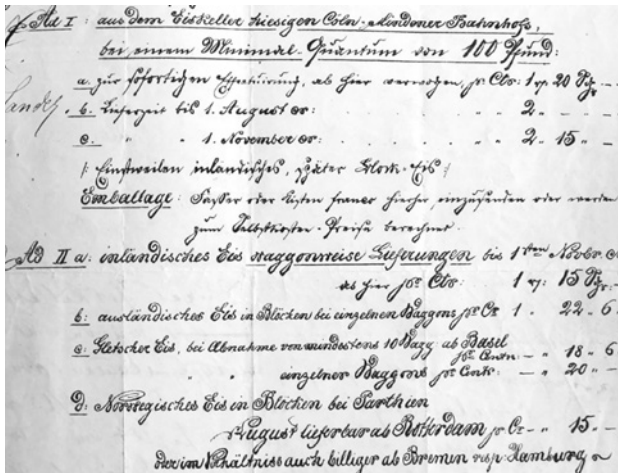 Ad I: aus dem Eiskeller hiesigen Cöln-Mindener Bahnhofs,
bei einem Minimal-Quantum von 100 Pfund:
a. zur sofortigen als hier per Ctr: 1 rp 20 Sgr -
b. Lieferzeit bis 1. August cr: " " " 2 " - " -
c. " " 1. November cr: " " " 2 " 15 " -
/: Einstweilen inländisches, später Block-Eis :/
Emballage: Fässer oder Kisten franco hierher einzusenden oder werden
zum Selbstkosten-Preise berechnet.
Ad II a: inländisches Eis waggonweise Lieferungen bis 1sten Novbr. cr
ab hier pr Ctr: 1 rp: 15 Sgr: -
b: ausländisches Eis in Blöcken bei einzelnen Waggons pr Ctr 1 " 22 " 6
c: Gletscher Eis, bei Abnahme von mindestens 10 Wagg. ab Basel
pr Centn: - " 18 " 6
" " einzelner Waggons pr Centr: - " 20 " -
d: Norwegisches Eis in Blöcken bei Parthien
August lieferbar ab Rotterdam pr Ctr - " 15 " -
oder im Verhältniss auch billiger ab Bremen resp. Hamburg